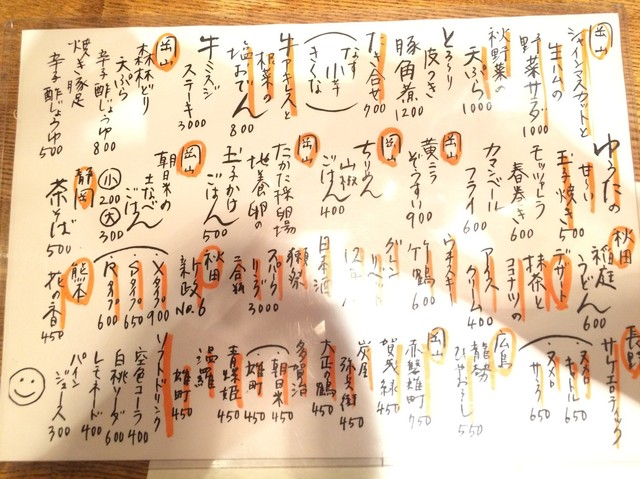 岡山
シャインマスカットと
生ハムの
野菜サラダ
1000
秋野菜の
天ぷら
1000
とろ〜り
皮つき
豚角煮
1200
たき合せ
700
なす
小芋
牛アキレスと
根菜の
塩おでん
800
牛ミスジ
ステーキ
3000
岡山
森林どり
天ぷら
辛子酢じょうゆ
800
焼き豚足
辛子酢じょうゆ
500
ゆうたの
甘〜い
玉子焼き
500
モッツァとろ
春巻き
600
カマンベール
フライ
600
岡山
黄ニラ
ぞうすい
900
岡山
ちりめん
山椒
ごはん
400
たかた採卵場
地養卵の
玉子かけ
ごはん
500
岡山
朝日米の
土なべ
ごはん
小
200
大
300
静岡
茶そば
500
秋田
稲庭
うどん
600
デザート
抹茶と
ココナツの
アイス
クリーム
400
ウイスキー
竹鶴
600
グレーン
リベット
12年
日本酒
獺祭
スパーク
リング
3000
二合瓶
秋田
新政
No.6
900
600
熊本
花の香
450
650
650
広島
龍勢
ひやおろし
550
岡山
赤磐雄町
750
賀茂緑
450
炭屋
弥兵衛
450
大正の鶴
450
多賀治
朝日米
450
雄町
450
450
温羅
雄町
450
ソフトドリンク
空色コーラ
400
白桃ソーダ
600
レモネード
400
パイン
ジュース
300